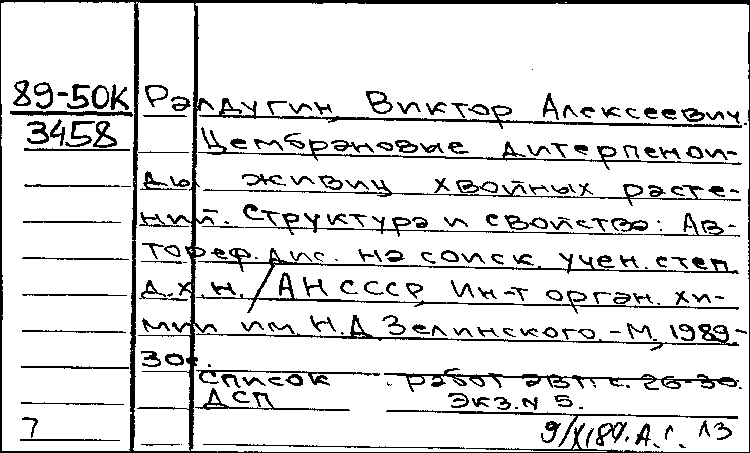 89-50К Ралдугин, Виктор Алексеевич.
3458 Цембрановые дитерпенои-
ды живиц хвойных расте-
ний. Структура и свойства: Ав-
тореф. дис. на соиск. учен. степ.
д.х.н. / АН СССР, Ин-т орган. хи-
мии им. Н.Д. Зелинского. - М., 1989. -
30с.
Список работ авт.: с. 26-30.
ДСП Экз. N 5.
7 9/XI89. А.Г. 13